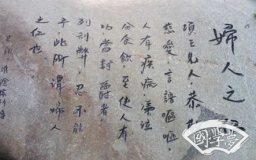 婦人之
項王見人恭
慈愛言語嘔嘔
人有疾病涕泣
分食飲至使人有
功當封爵者
列刓弊忍不能
予此所謂婦人
之仁也
國學夢